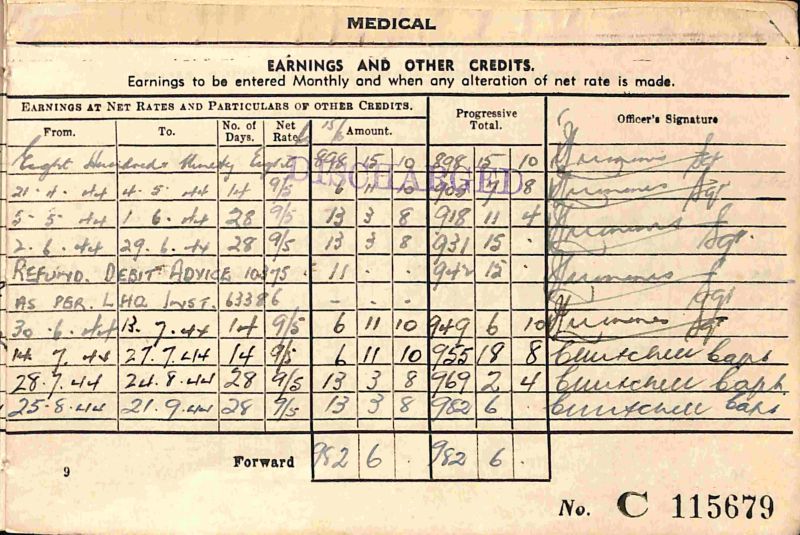 MEDICAL
EARNINGS AND OTHER CREDITS.
Earnings to be entered Monthly and when any alteration of net rate is made.
EARNINGS AT NET RATES AND PARTICULARS OF OTHER CREDITS. Progressive Total. Officer's Signature
From. To. No. of Days. Net Rate Amount.
Eight Hundred & Ninety Eight 15/ 898 15 10 898 15 10
DISCHARGED
21-4-44 4-5-44 14 9/5 6 11 10 905 7 8 Sgt
5-5-44 1-6-44 28 9/5 13 3 8 918 11 4 Sgt.
2.6.44 29.6.44 28 9/5 13 3 8 931 15 .
REFUND. DEBIT ADVICE 10375 . 11 . . 942 15 .
AS PER. LHQ INST. 63386 - . . Sgt
30.6.44 13.7.44 14 9/5 6 11 10 949 6 10 Sgt
14 7.44 27.7.44 14 9/5 6 11 10 955 18 8 Capt
28.7.44 24.8.44 28 9/5 13 3 8 969 2 4 Capt.
25.8.44 21.9.44 28 9/5 13 3 8 982 6 . Capt
Forward 982 6 . 982 6 .
9
No. C 115679